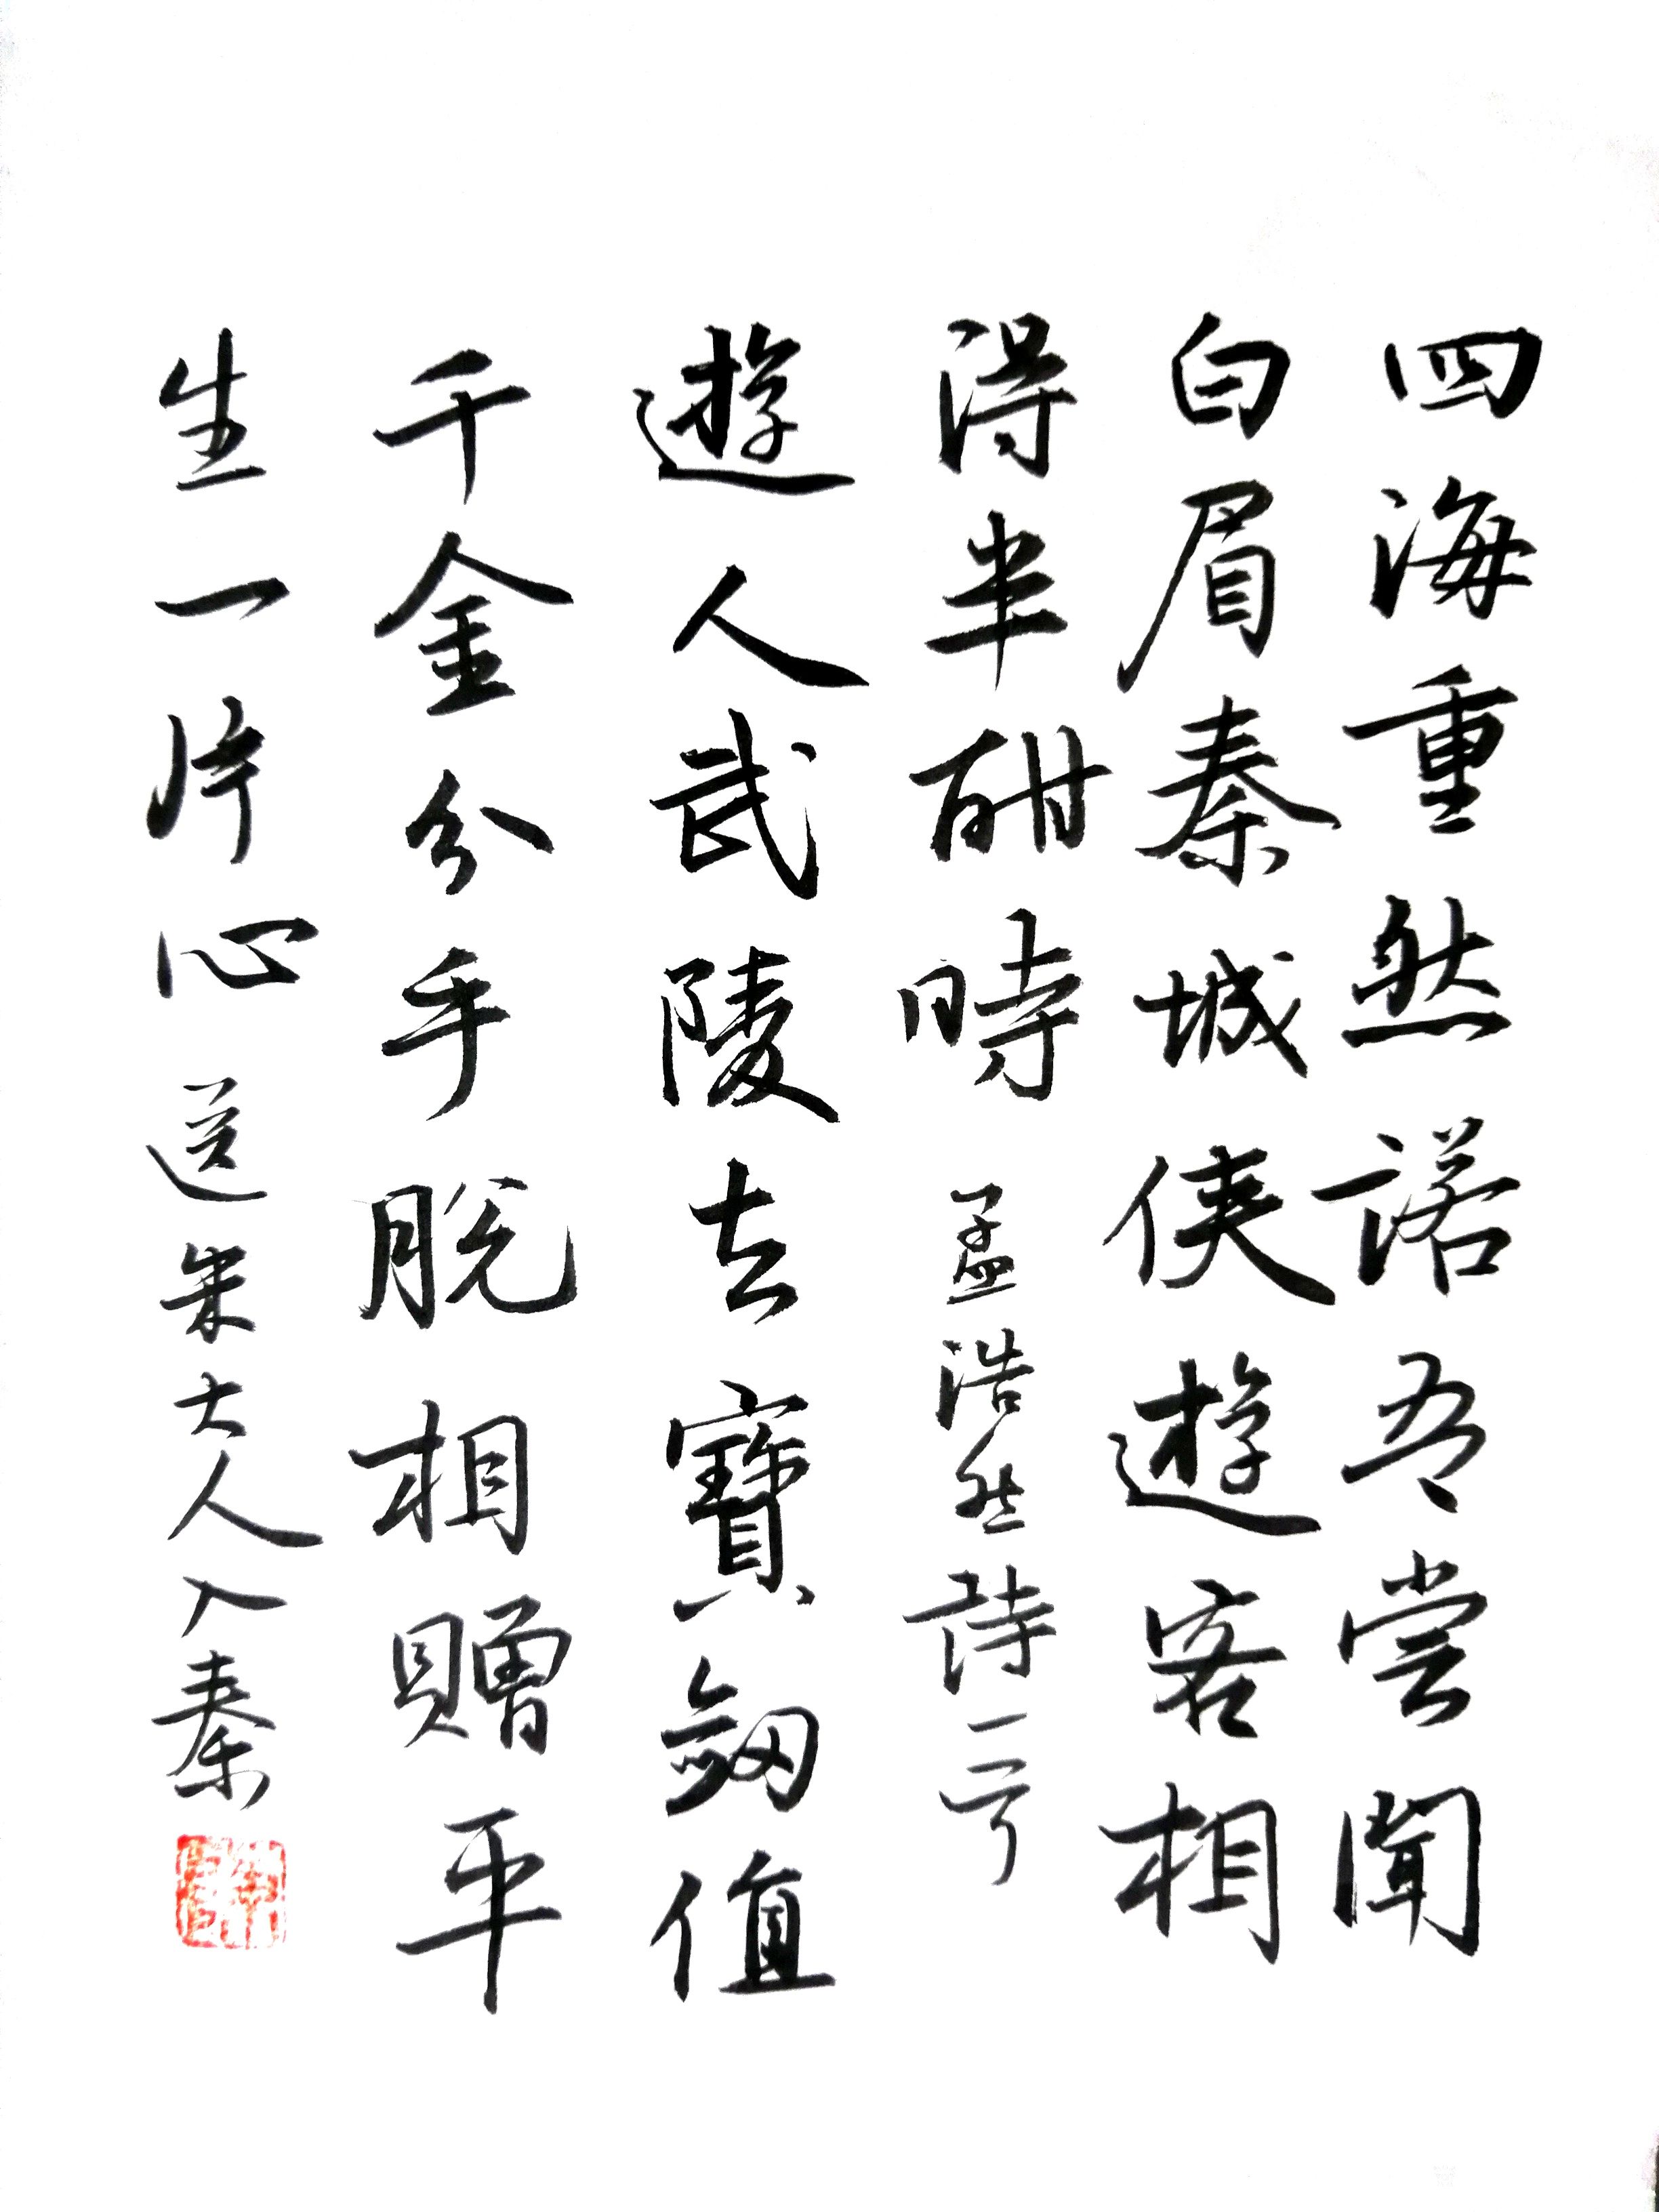 四海重然諾吾尝聞
白眉秦城侠遊客相
得半酣時 孟浩然詩二首
遊人武陵去寶劒值
千金分手脫相贈平
生一片心 送朱大人入秦